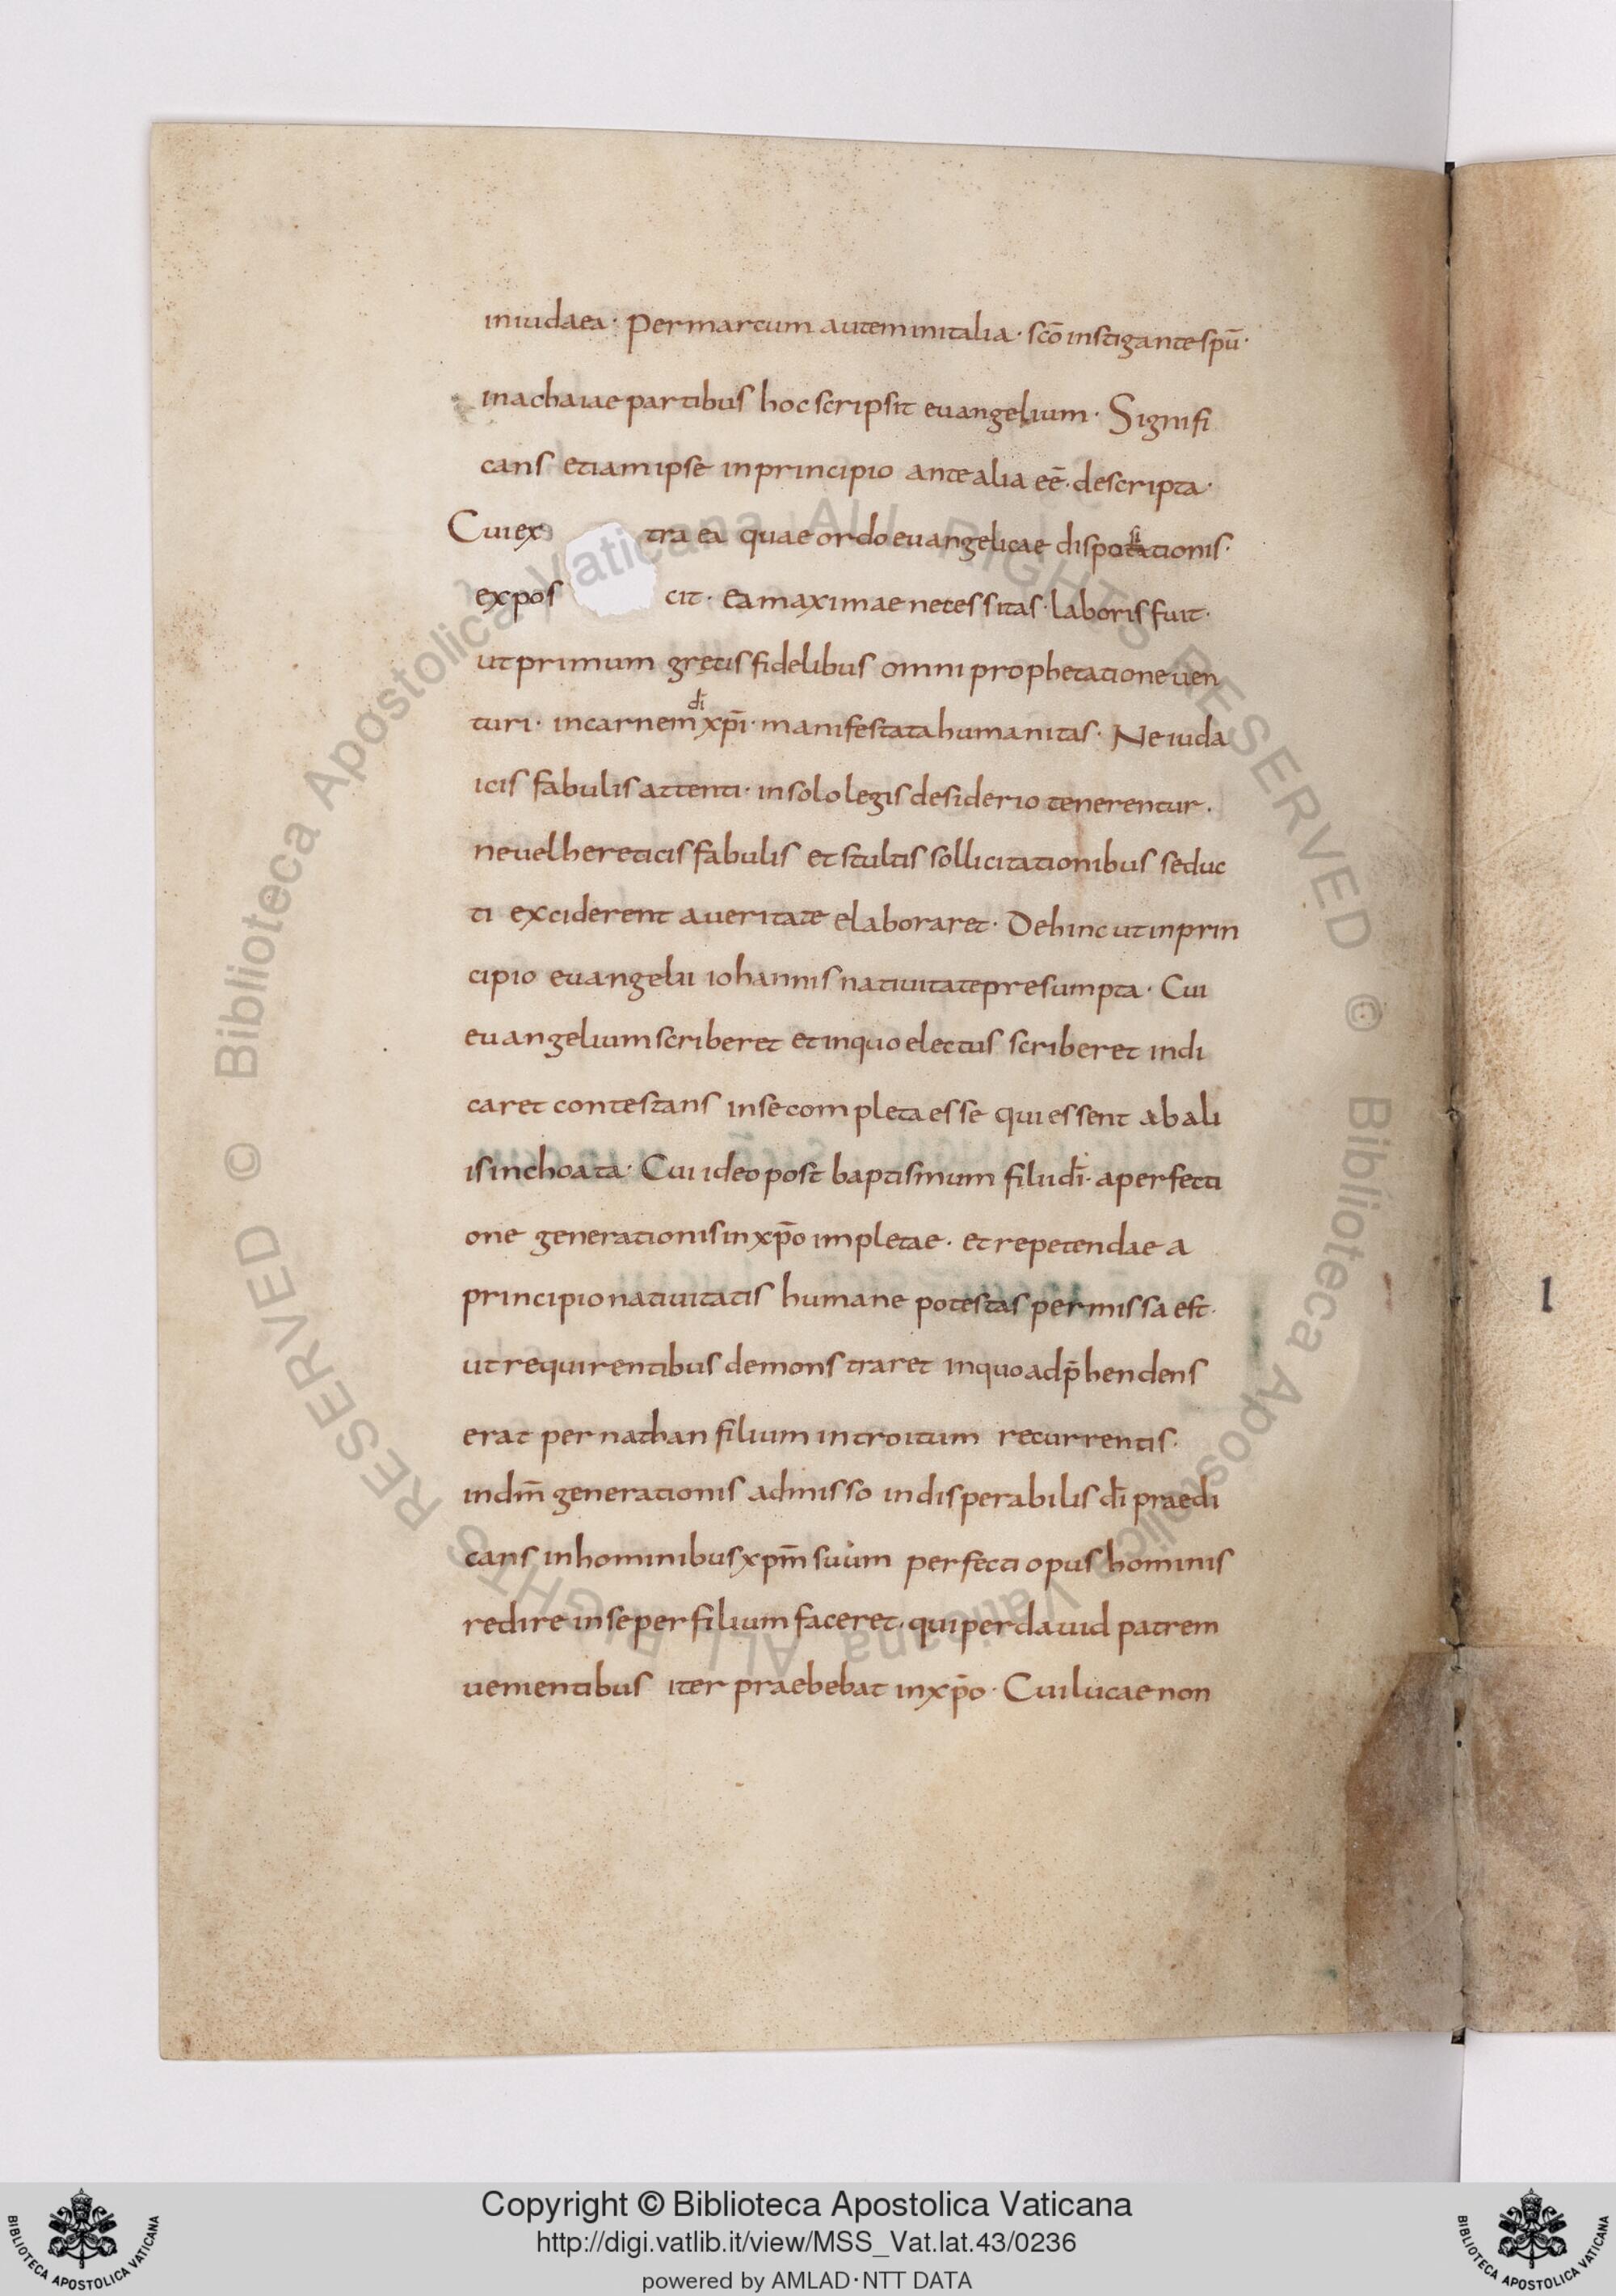 iniudaea · Per marcum autem initalia · sc̄o instigante spū ·
inachaiae partibus hoc scripsit euangelium · Signifi
cans etiam ipse in principio ante alia eē · descripta ·
Cui ex tra ea quae ordo euangelicae dispotationis ·
expos cit · ea maximae necessitas · laboris fuit ·
ut primum gręcis fidelibus omni prophetatione uen
turi · in carnem dī xp̄i · manifestata humanitas · Ne iuda
icis fabulis attenti · in solo legis desiderio tenerentur .
ne uel hereticis fabulis et stultis sollicitationibus seduc
ti exciderent a ueritate elaboraret · Dehinc ut in prin
cipio euangelii iohannis natiuitate presumpta · Cui
euangelium scriberet et inquo electus scriberet indi
caret contestans in se completa esse qui essent ab ali
is inchoata · Cui ideo post baptismum filii dī · a perfecti
one generationis in xp̄o impletae · et repetendae a
principio natiuitatis humane potestas permissa est ·
ut requirentibus demonstraret inquo adp̄hendens
erat per nathan filium introitum recurrentis ·
in dm̄ generationis admisso indisperabilis dī praedi
cans in hominibus xpm̄ suum perfecti opus hominis
redire in se per filium faceret · qui per dauid patrem
uenientibus iter praebebat in xp̄o · Cui lucae non
1
© Biblioteca Apostolica Vaticana ALL RIGHTS RESERVED © Biblioteca Apostolica Vaticana ALL RIGHTS RESERVED
Copyright © Biblioteca Apostolica Vaticana
http://digi.vatlib.it/view/MSS_Vat.lat.43/0236
powered by AMLAD·NTT DATA
BIBLIOTECA APOSTOLICA VATICANA
BIBLIOTECA APOSTOLICA VATICANA